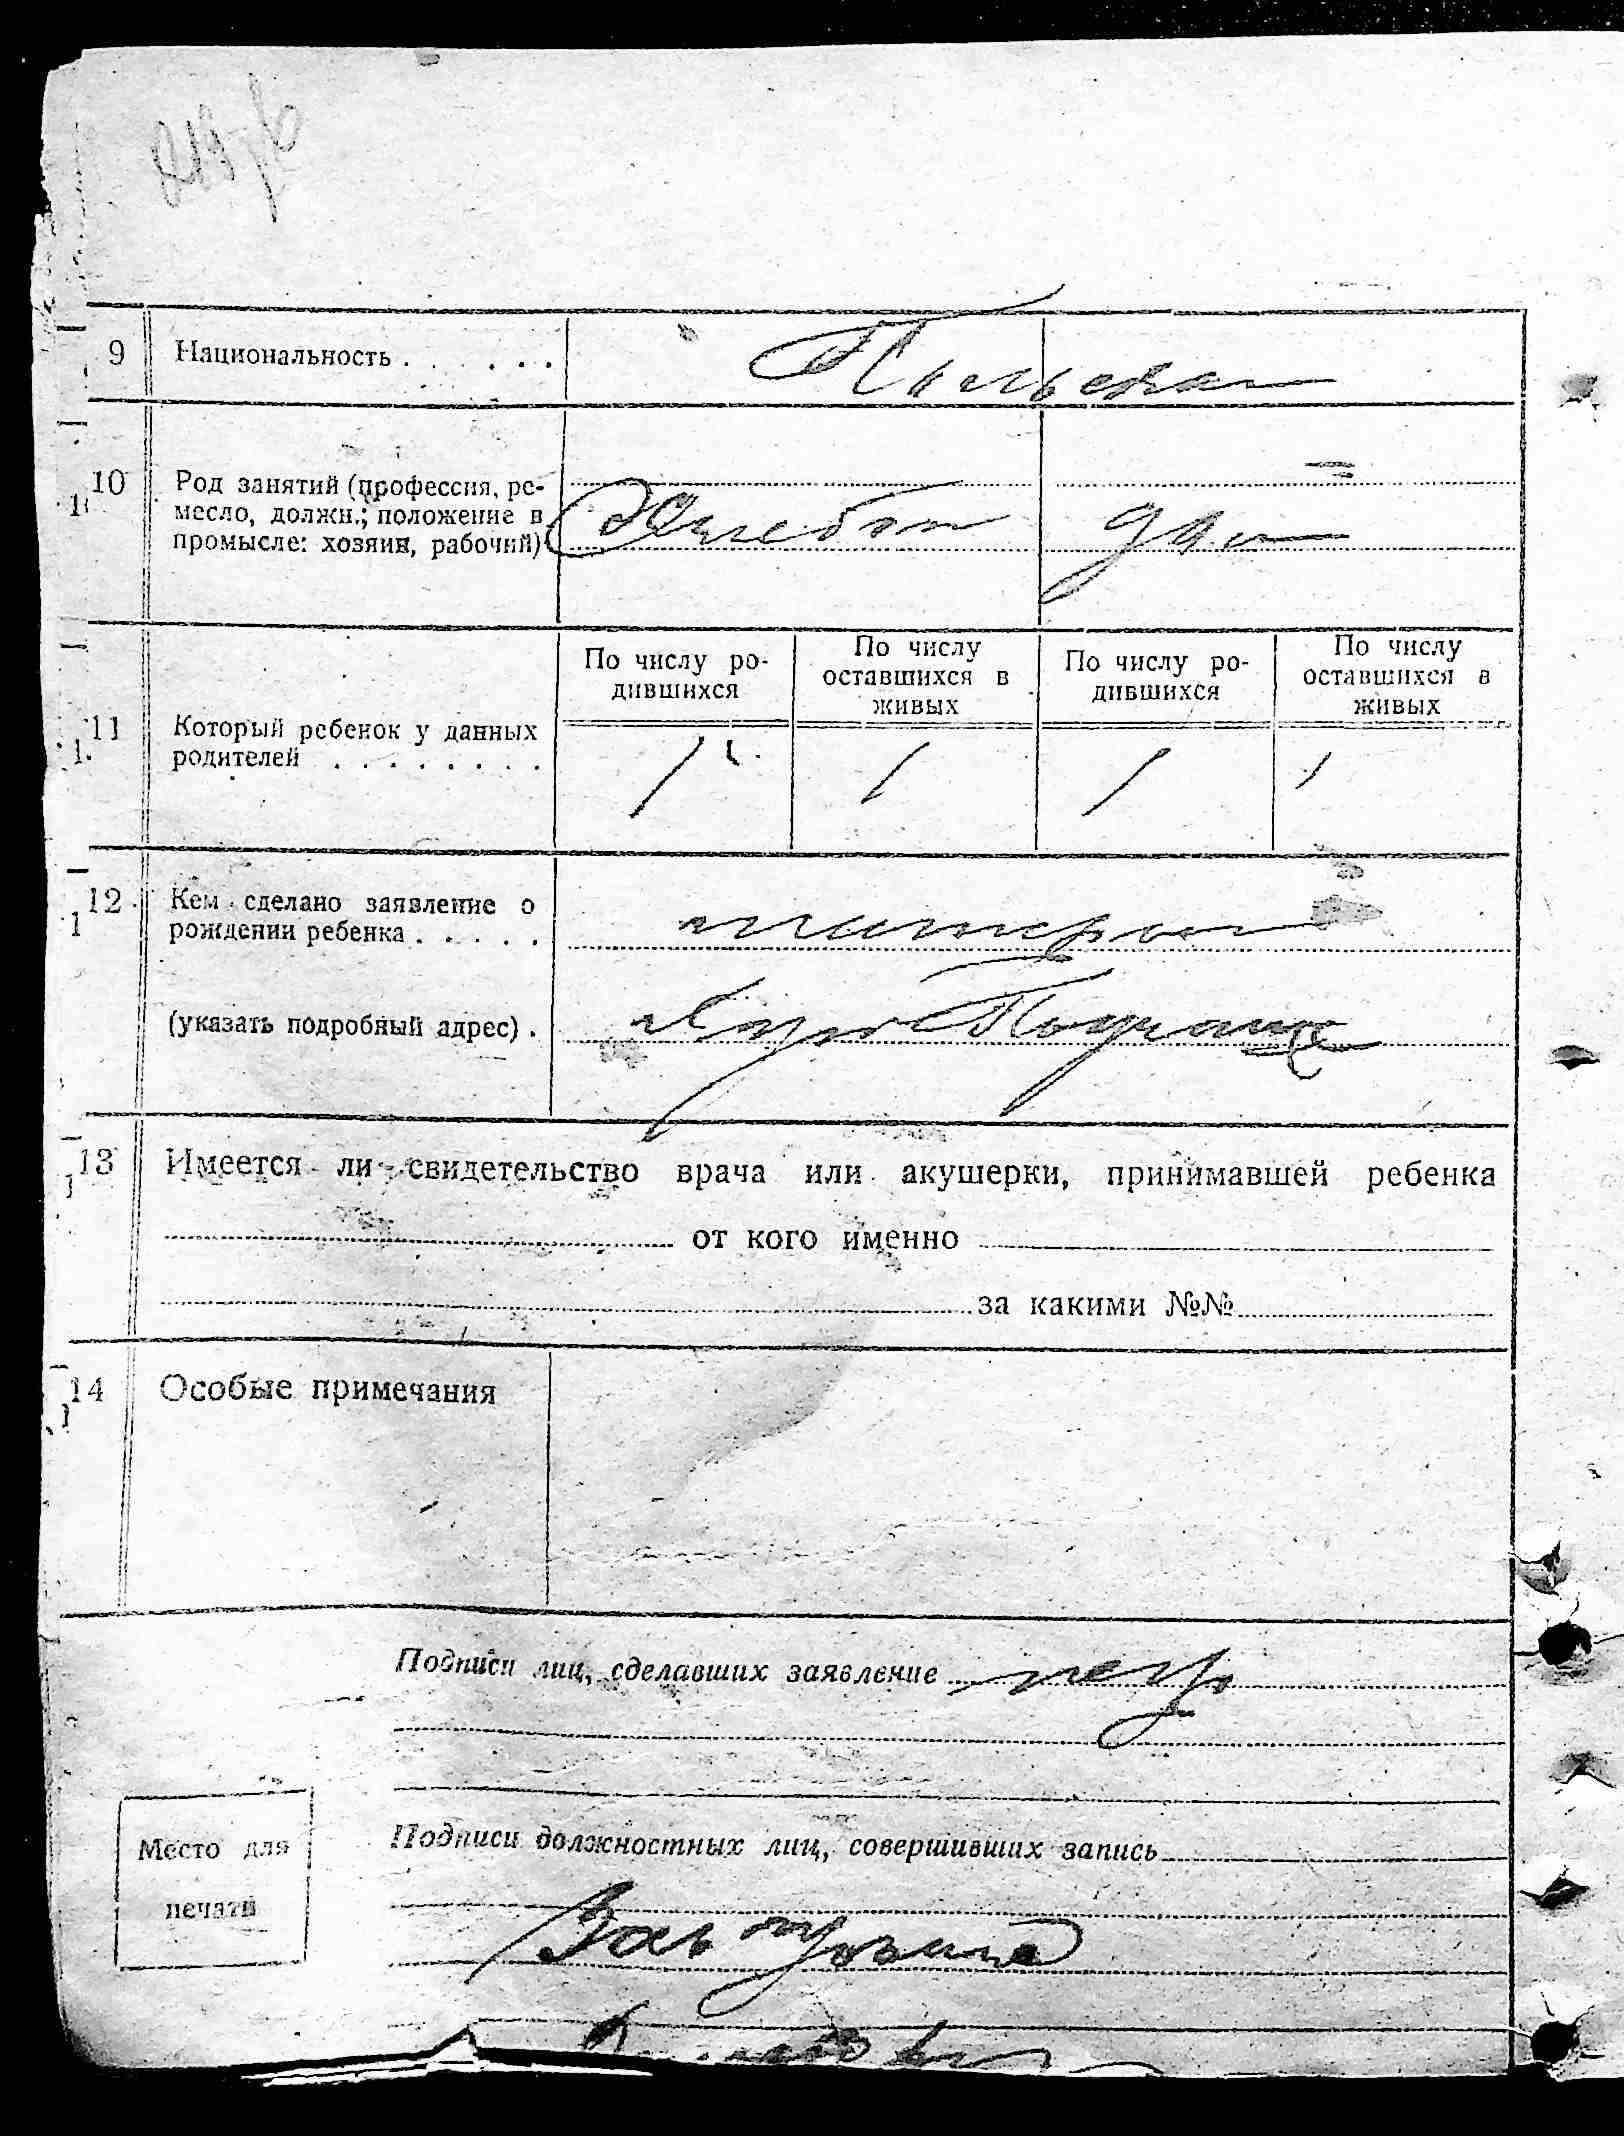 9 Национальность . . . . . . Польская
10 Род занятий (профессия, ре-
месло, должн.; положение в
промысле: хозяин, рабочий)
11 Который ребенок у данных
родителей . . . . . . . .
По числу ро-
дившихся
По числу
оставшихся в
живых
По числу ро-
дившихся
По числу
оставшихся в
живых
1 1 1 1
12 Кем сделано заявление о
рождении ребенка . . . . .
матерью
(указать подробный адрес) .
13 Имеется ли свидетельство врача или акушерки, принимавшей ребенка
от кого именно
за какими №№
14 Особые примечания
Подписи лиц, сделавших заявление
Подписи должностных лиц, совершивших запись
Место для
печати